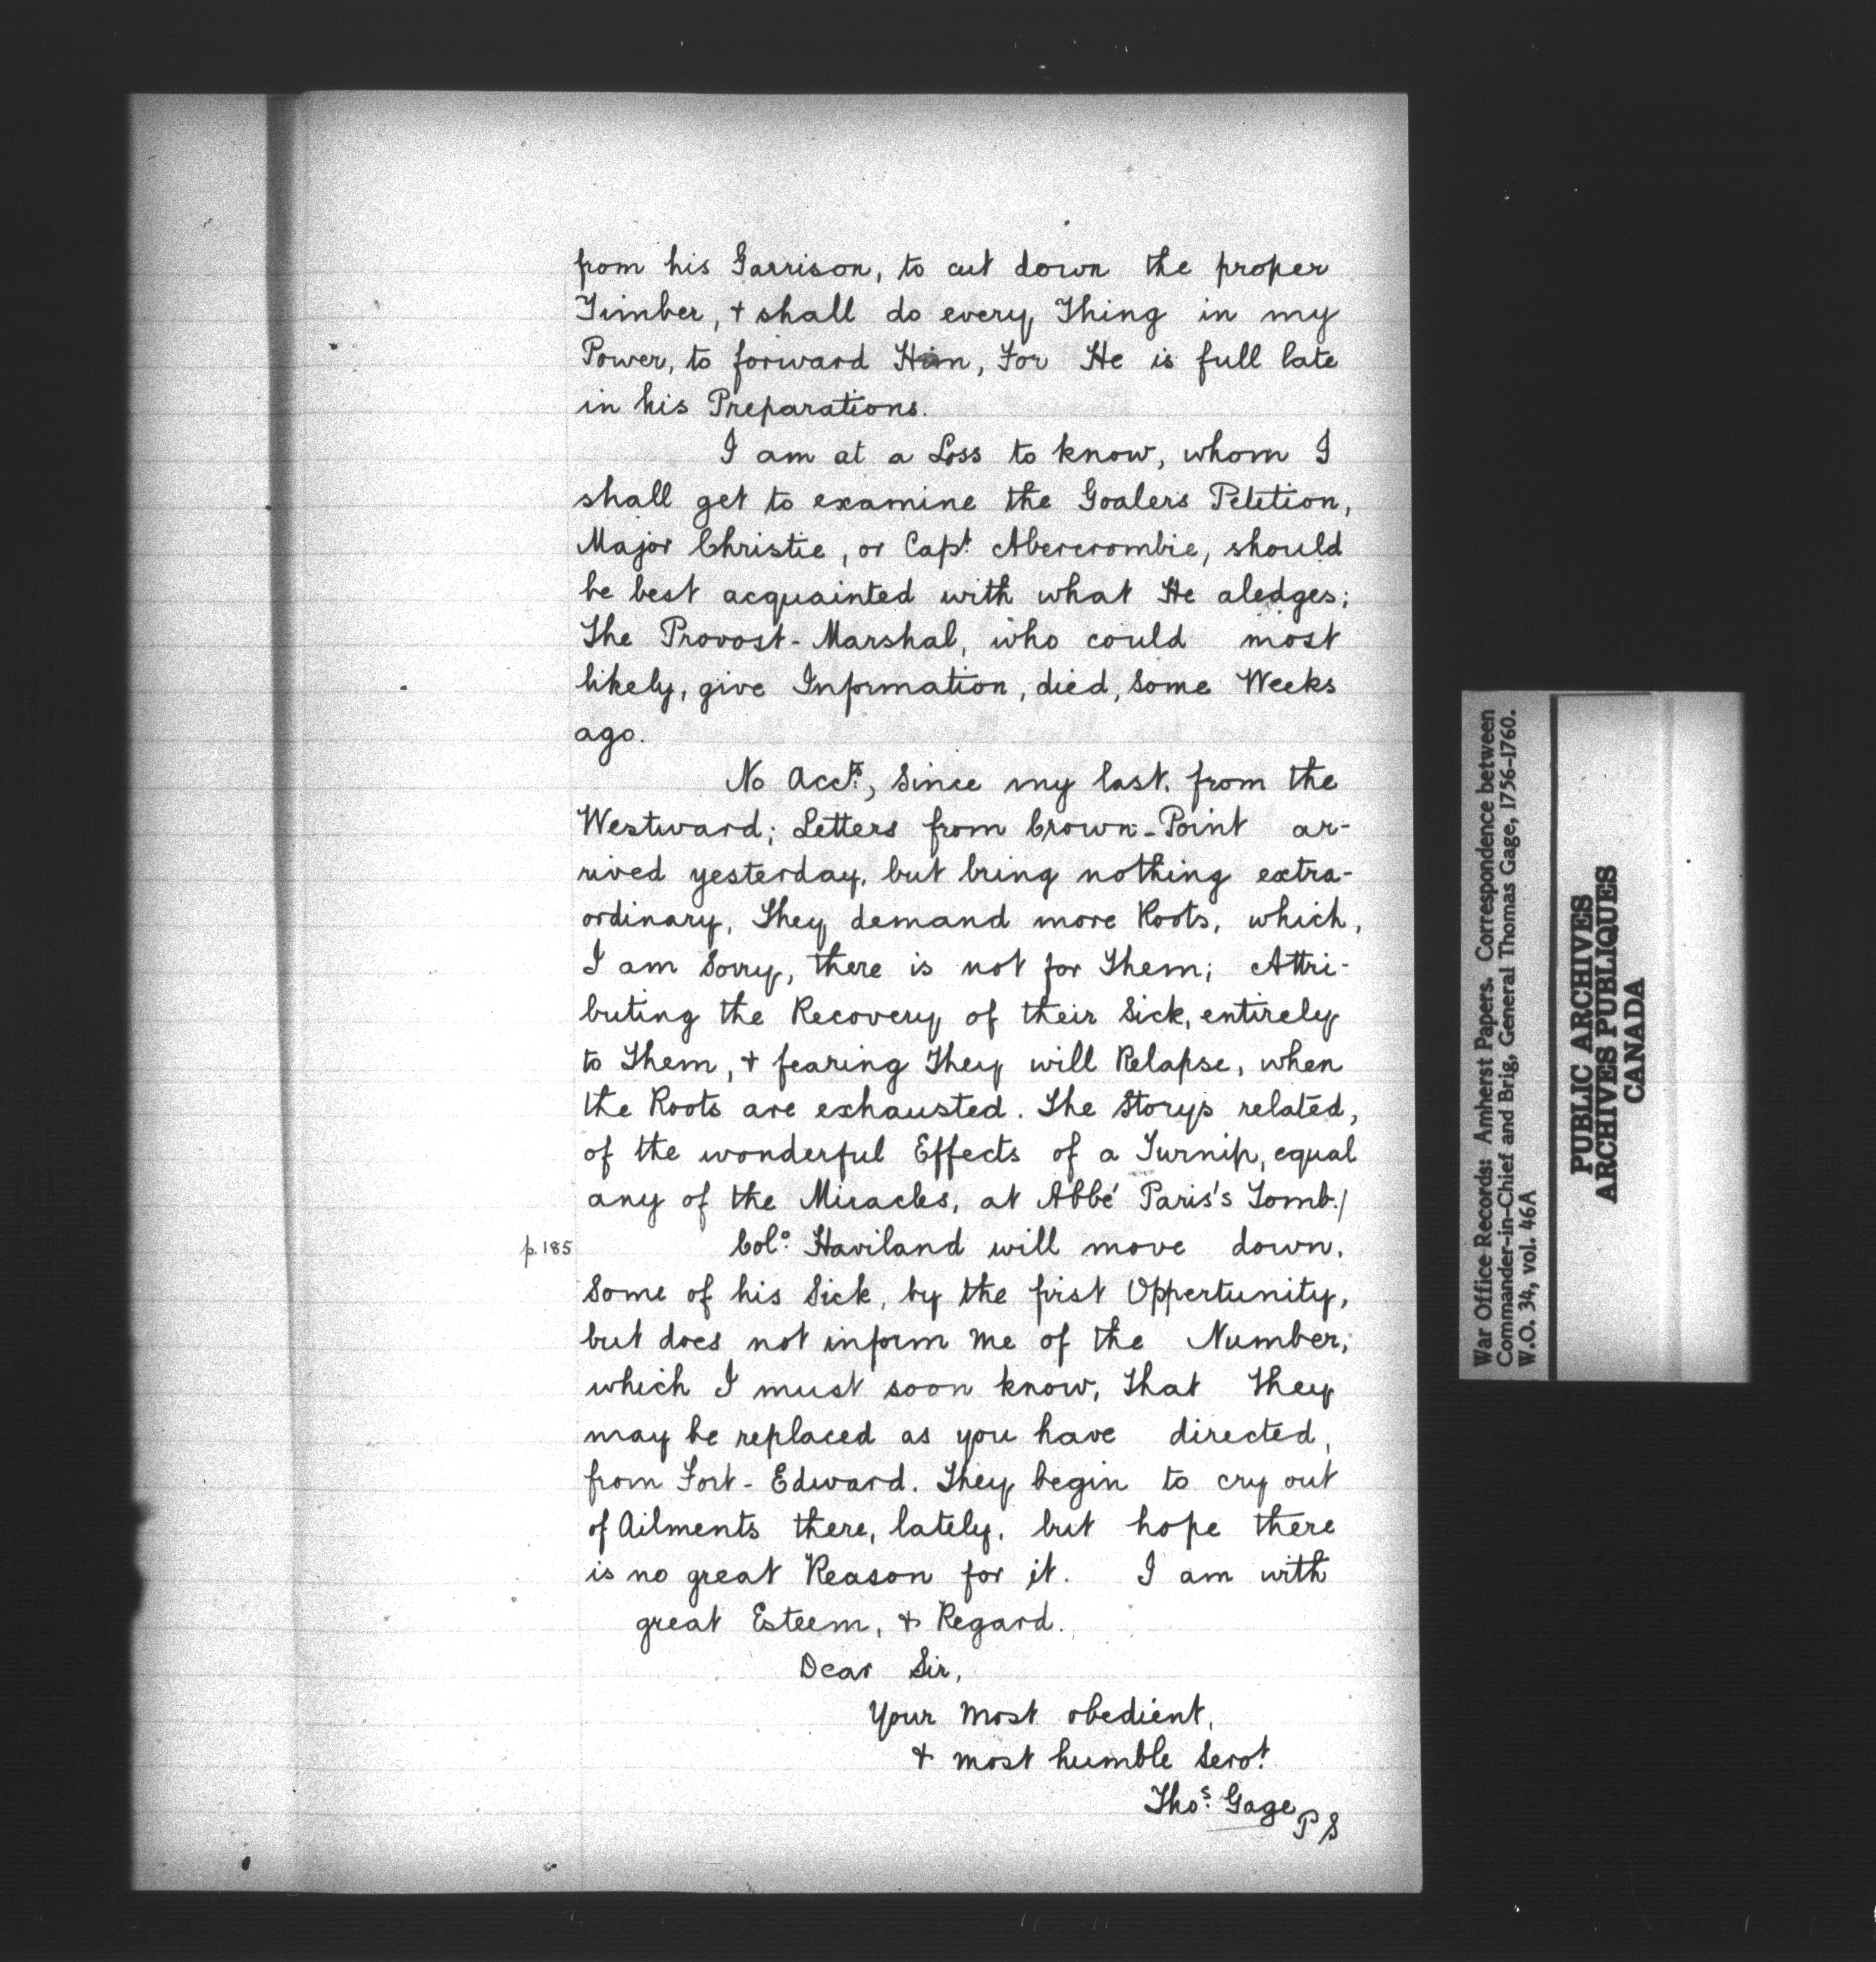 from his Garrison, to cut down the proper
Timber, + shall do every Thing in my
Power, to forward Him, For He is full late
in his Preparations.
I am at a Loss to know, whom I
shall get to examine the Goalers Petition,
Major Christie, or Capt. Abercrombie, should
be best acquainted with what He aledges;
The Provost-Marshal, who could most
likely, give Information, died, Some Weeks
ago.
No Accts., Since my last. from the
Westward; Letters from Crown-Point ar-
rived yesterday, but bring nothing extra-
ordinary, They demand more Roots, which,
I am Sorry, there is not for Them; Attri-
buting the Recovery of their Sick, entirely
to Them, + fearing They will Relapse, when
the Roots are exhausted. The Storys related,
of the wonderful Effects of a Turnip, equal
any of the Miracles, at Abbé Paris's Tomb./
p. 185
Colo. Haviland will move down.
Some of his Sick, by the first Oppertunity,
but does not inform me of the Number,
which I must soon know, That They
may be replaced as you have directed,
from Fort-Edward. They begin to cry out
of Ailments there, lately, but hope there
is no great Reason for it. I am with
great Esteem, + Regard.
Dear Sir,
Your Most obedient,
+ most humble Servt.
Thos. Gage
P S
War Office Records: Amherst Papers. Correspondence between
Commander-in-Chief and Brig. General Thomas Gage, 1756-1760.
W.O. 34, vol. 46A
PUBLIC ARCHIVES
ARCHIVES PUBLIQUES
CANADA